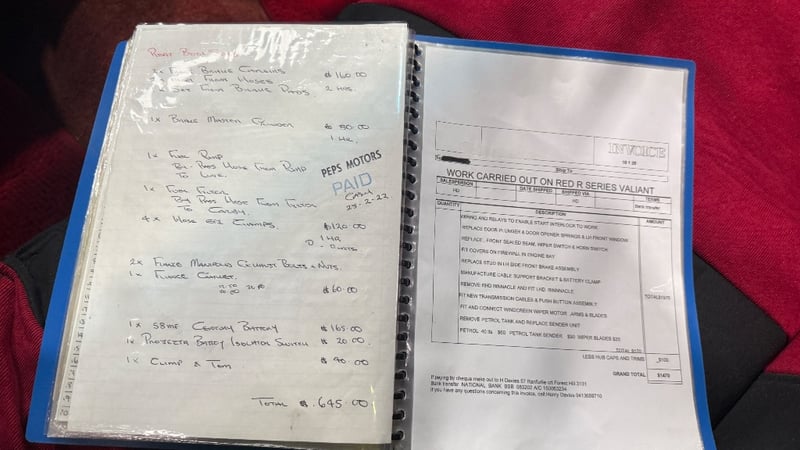 Front Brake Calipers $160.00
Front Hoses
1x Set Front Brake Pads 2 Hrs.
1x Brake Master Cylinder $90.00
1 Hr.
1x Fuel Pump
By-Pass Hose From Pump
To Line.
1x Fuel Filter
By Pass Hose From Filter
To Carby.
4x Hose Clamps. $120.00
1 Hr
PEPS MOTORS
PAID
CASH
25-2-22
2x Flange Manifold Exhaust Bolts & Nuts.
1x Flange Gasket.
$60.00
1x Century Battery $165.00
1x Projecta Battery Isolator Switch $20.00
1x Clamp & Term $40.00
Total $645.00
INVOICE
Ship To
WORK CARRIED OUT ON RED R SERIES VALIANT
SALESPERSON DATE SHIPPED SHIPPED VIA TERMS
HD HD Bank transfer
QUANTITY DESCRIPTION AMOUNT
WIRING AND RELAYS TO ENABLE START INTERLOCK TO WORK
REPLACE DOOR PLUNGER & DOOR OPENER SPRINGS & LH FRONT WINDOW
REPLACE FRONT SEALED BEAM, WIPER SWITCH & HORN SWITCH
FIT COVERS ON FIREWALL IN ENGINE BAY
REPLACE STUD IN LH SIDE FRONT BRAKE ASSEMBLY
MANUFACTURE CABLE SUPPORT BRACKET & BATTERY CLAMP
REMOVE RHD PINNACLE AND FIT LHD PINNNACLE
FIT NEW TRANSMISSION CABLES & PUSH BUTTON ASSEMBLY
FIT AND CONNECT WINDSCREEN WIPER MOTOR, ARMS & BLADES
REMOVE PETROL TANK AND REPLACE SENDER UNIT
PETROL 40 lts $60 PETROL TANK SENDER, WIPER BLADES
LESS HUB CAPS AND TRIMS $100
GRAND TOTAL $1470
If paying by cheque make out to H Davies 57 Forest Hill 3131
Bank transfer NATIONAL BANK BSB
If you have any questions concerning this invoice, call Harry Davies